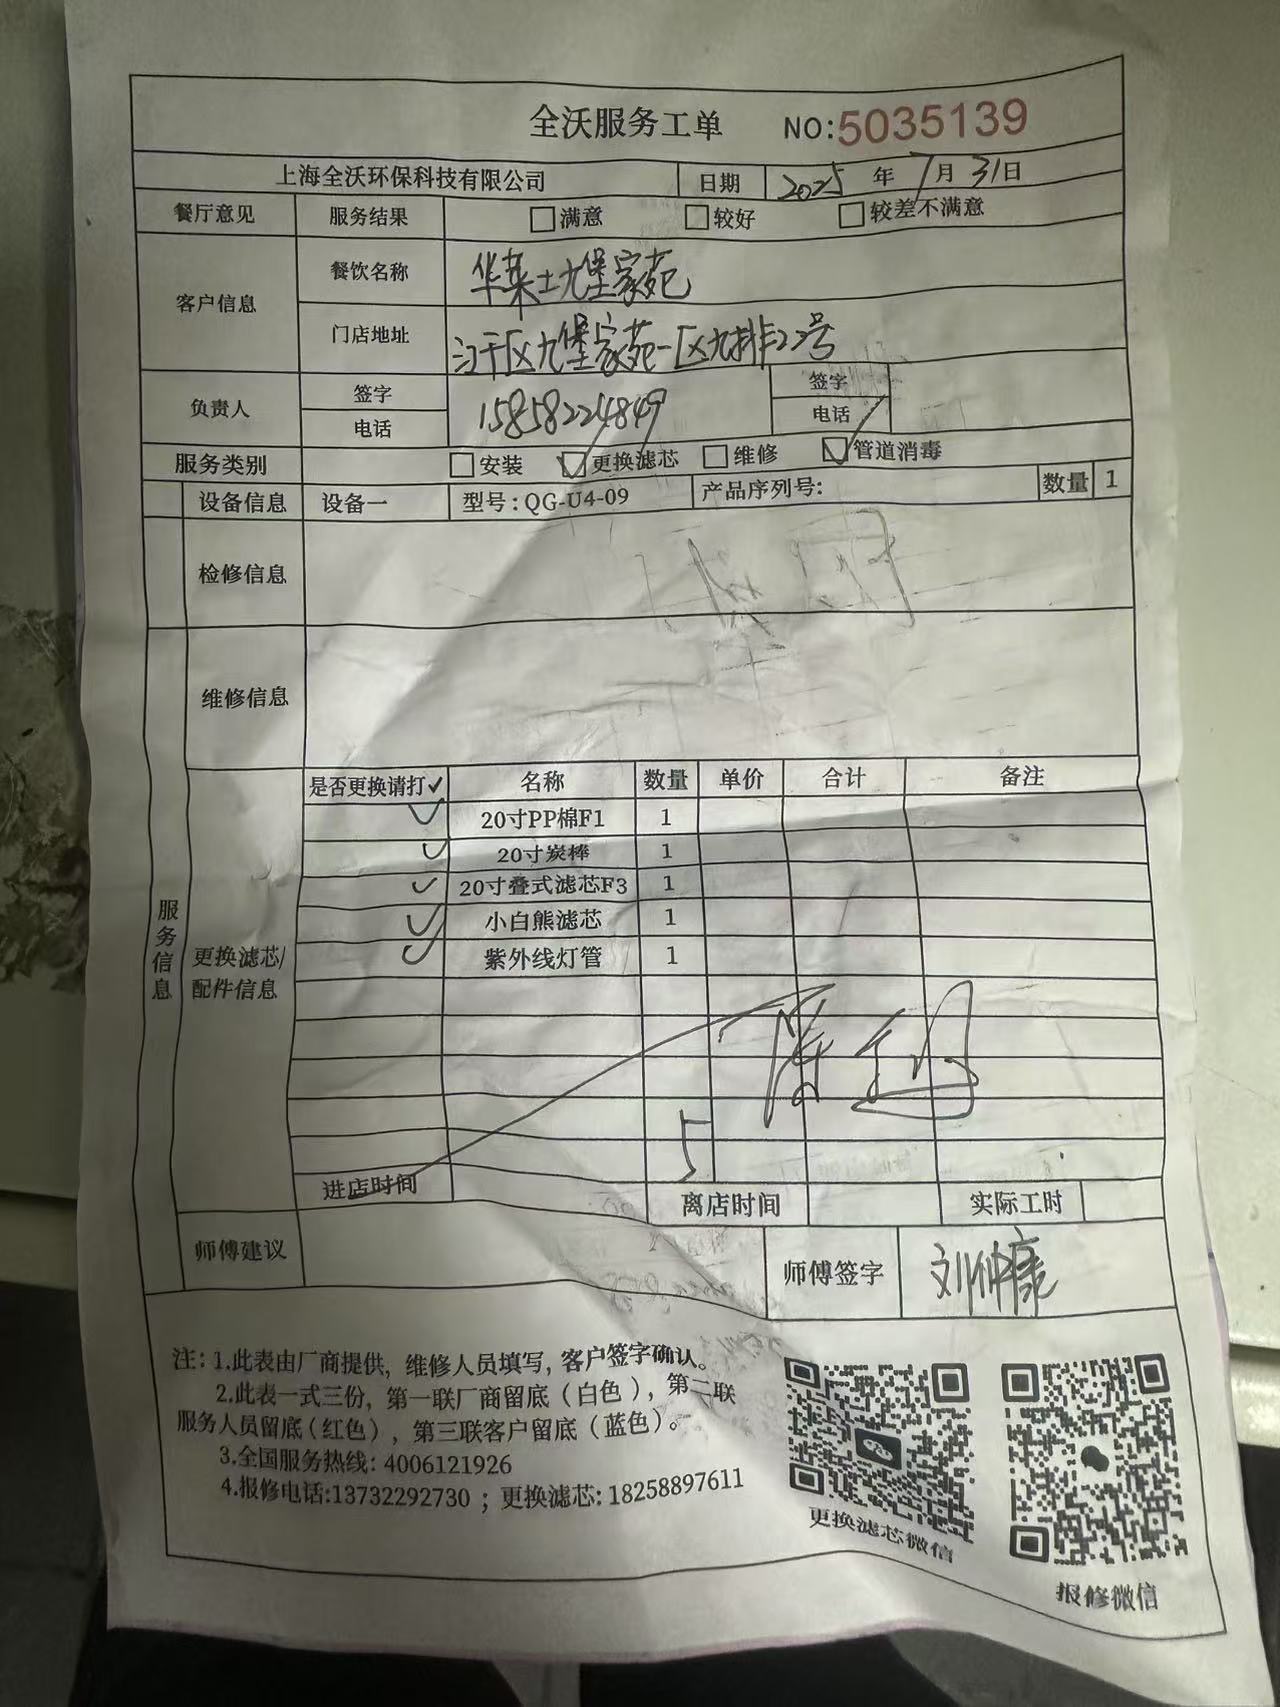 全沃服务工单 NO:5035139
上海全沃环保科技有限公司 日期 2025年7月31日
餐厅意见 服务结果 满意 较好 较差不满意
客户信息 餐饮名称 华莱士九堡家苑
门店地址 江干区九堡家苑一区九排22号
负责人 签字 签字
电话 15858224849 电话
服务类别 安装 更换滤芯 维修 管道消毒
设备信息 设备一 型号:QG-U4-09 产品序列号: 数量 1
检修信息
维修信息
服务信息
更换滤芯/
配件信息
是否更换请打✓ 名称 数量 单价 合计 备注
✓ 20寸PP棉F1 1
✓ 20寸炭棒 1
✓ 20寸叠式滤芯F3 1
✓ 小白熊滤芯 1
✓ 紫外线灯管 1
进店时间 离店时间 实际工时
师傅建议 师傅签字 刘仲康
注:1.此表由厂商提供,维修人员填写,客户签字确认。
2.此表一式三份,第一联厂商留底(白色),第二联
服务人员留底(红色),第三联客户留底(蓝色)。
3.全国服务热线:4006121926
4.报修电话:13732292730 ;更换滤芯:18258897611
更换滤芯微信
报修微信